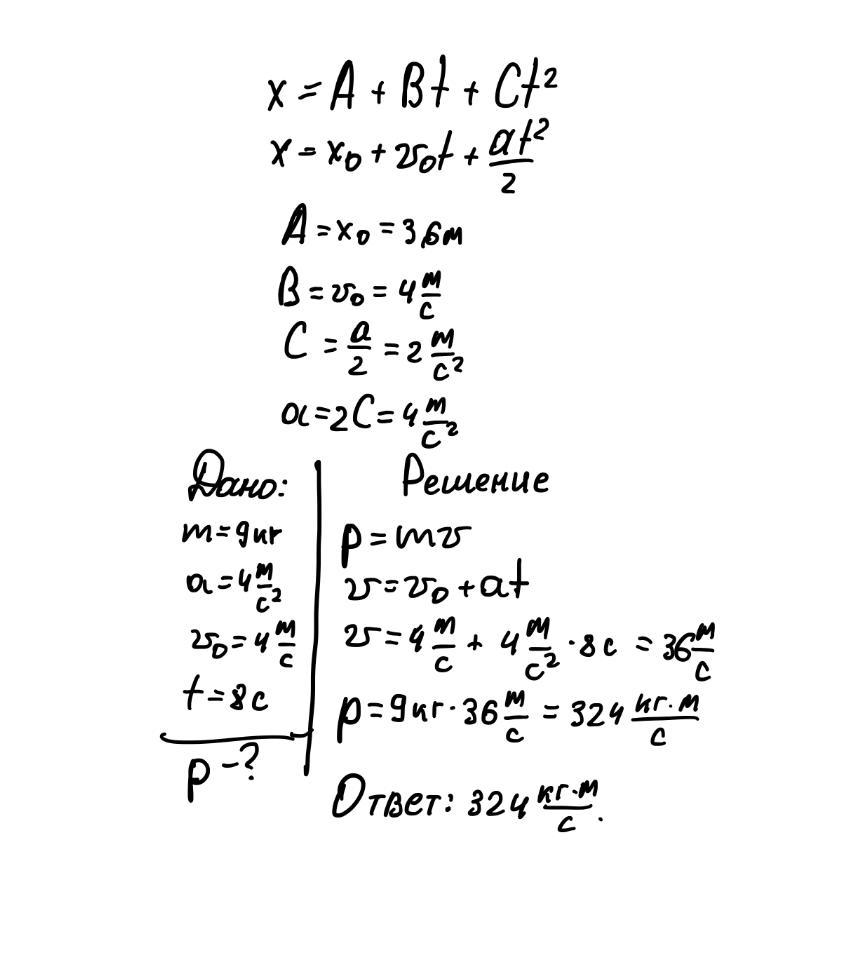 x = A + Bt + Ct²
x = x₀ + v₀t + at²/2
A = x₀ = 3,6м
B = v₀ = 4 м/с
C = a/2 = 2 м/с²
a = 2C = 4 м/с²
Дано:
m = 9кг
a = 4 м/с²
v₀ = 4 м/с
t = 8с
p - ?
Решение
p = mv
v = v₀ + at
v = 4 м/с + 4 м/с² · 8с = 36 м/с
p = 9кг · 36 м/с = 324 кг·м/с
Ответ: 324 кг·м/с.